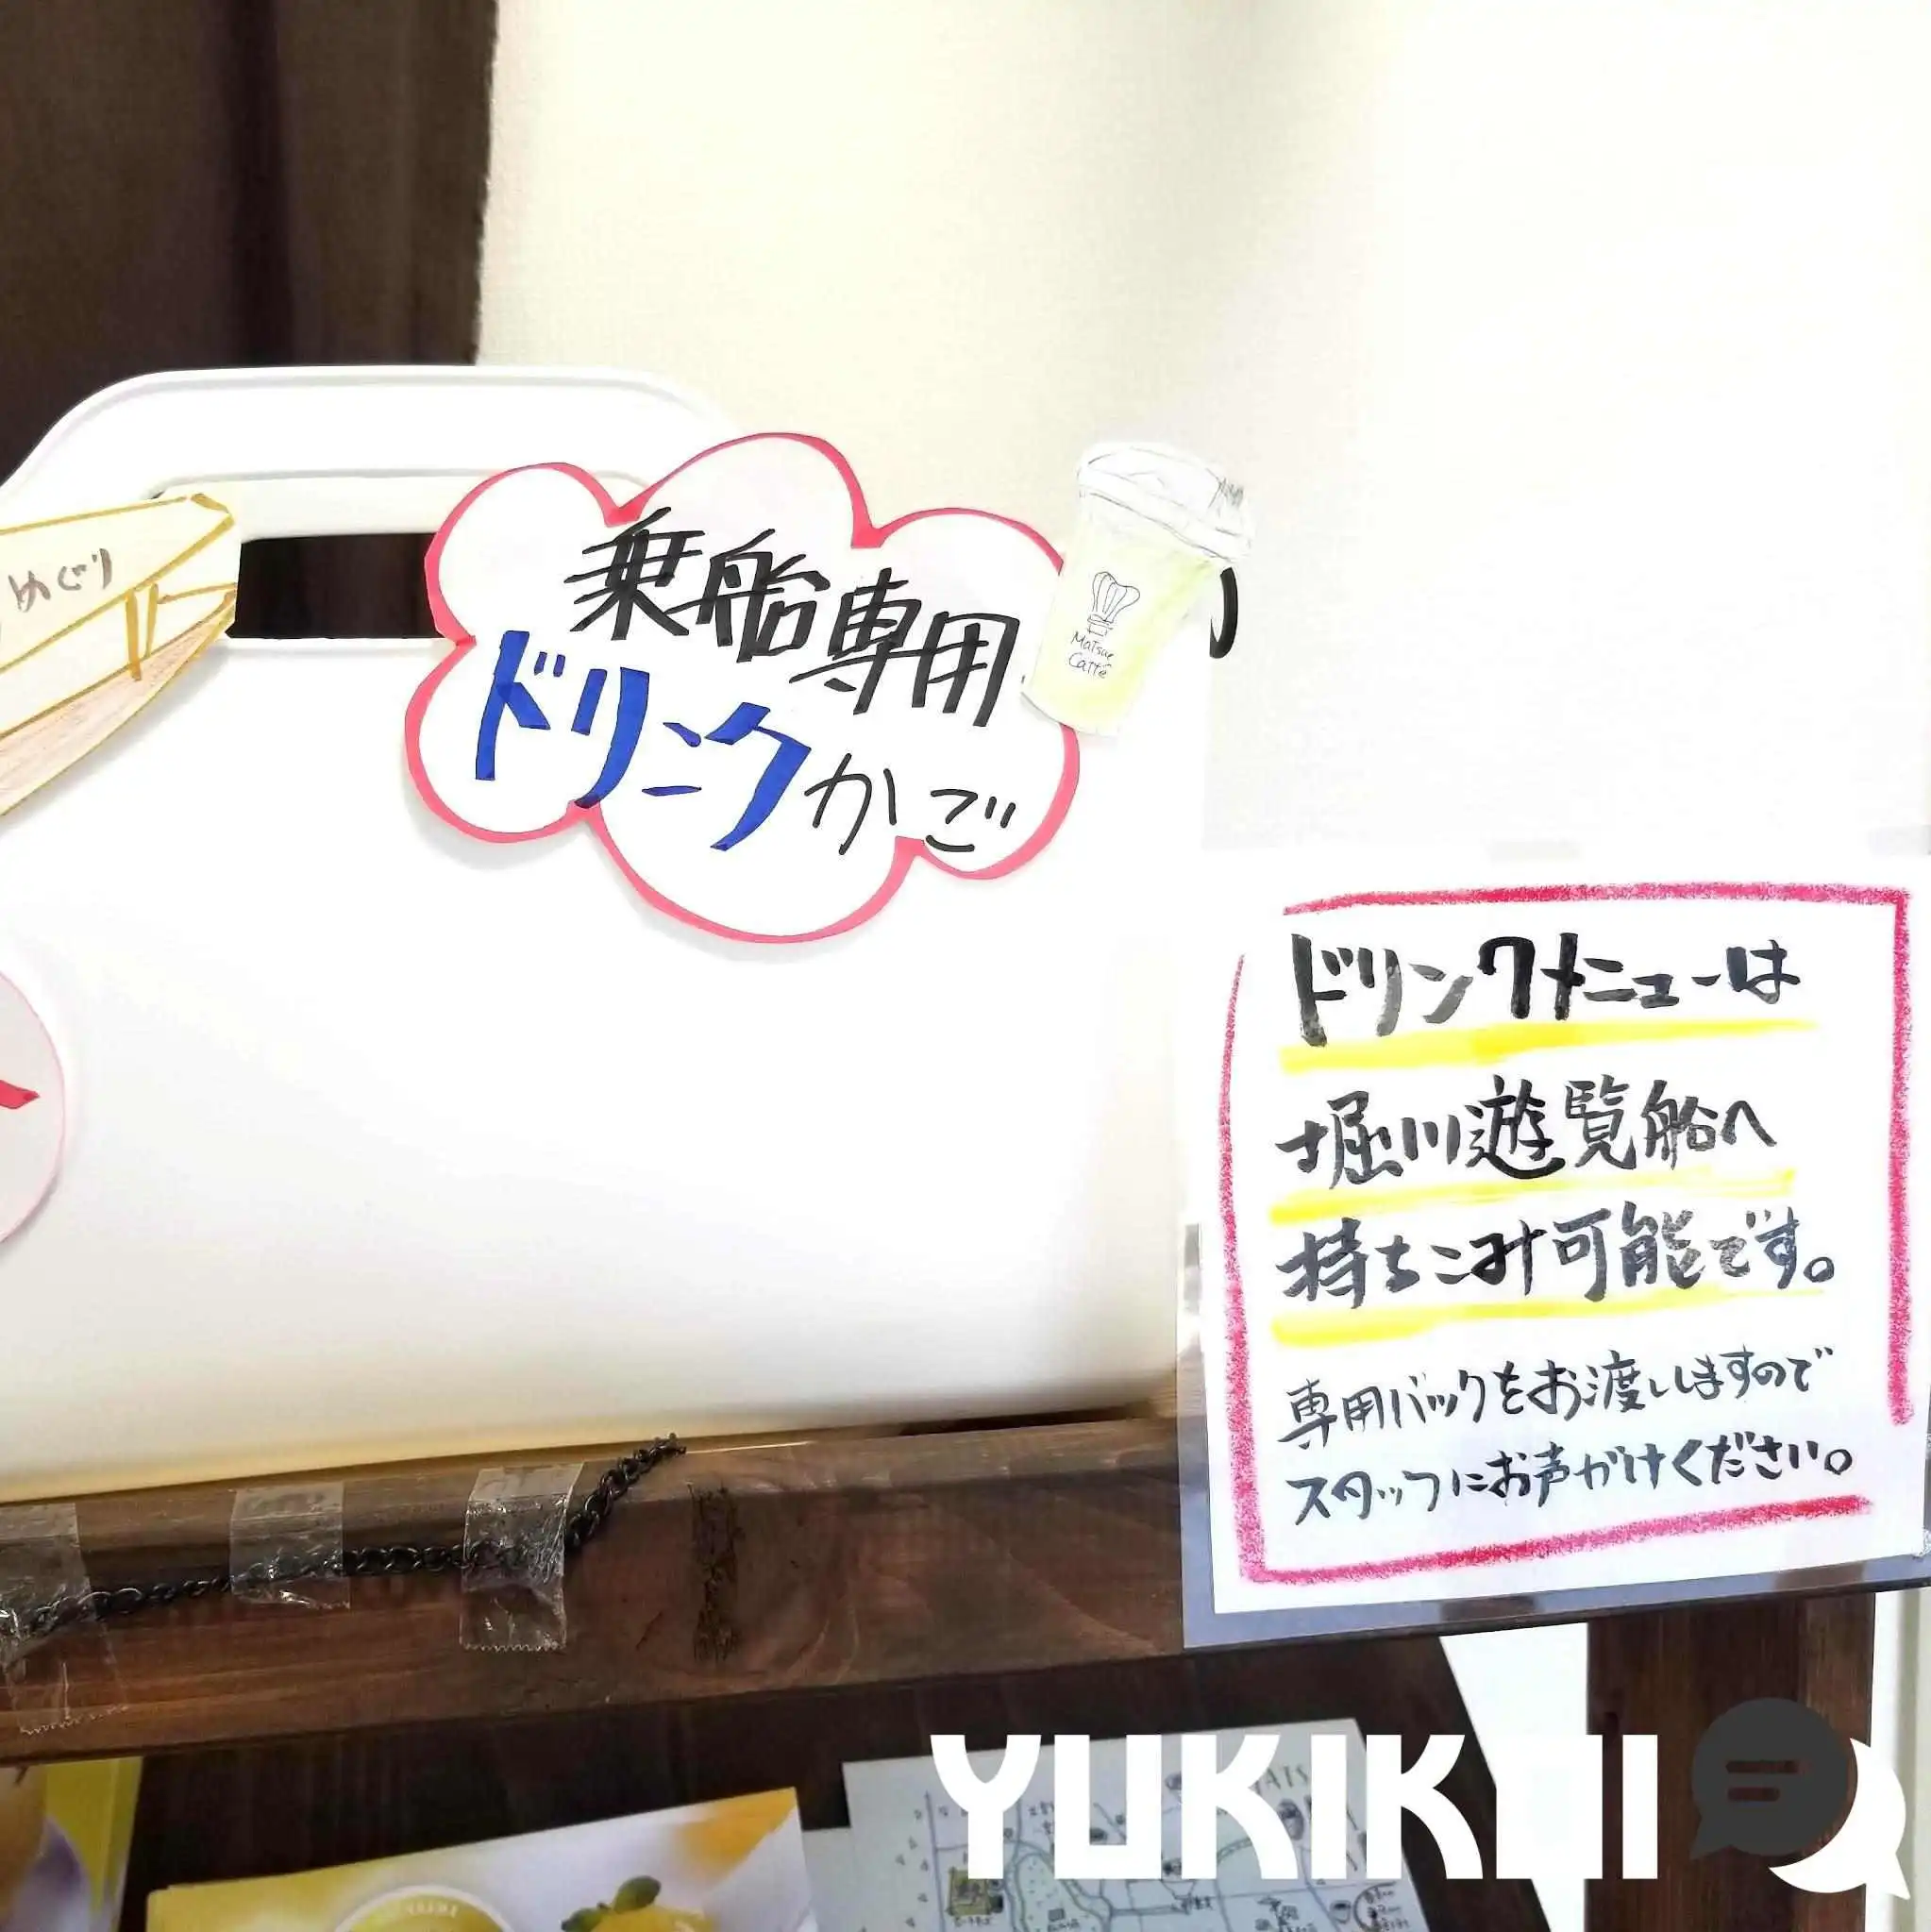 めぐり
乗船専用
ドリンクかご
Matsue
Caffe
ドリンクメニューは
堀川遊覧船へ
持ちこみ可能です。
専用バックをお渡ししますので
スタッフにお声がけください。